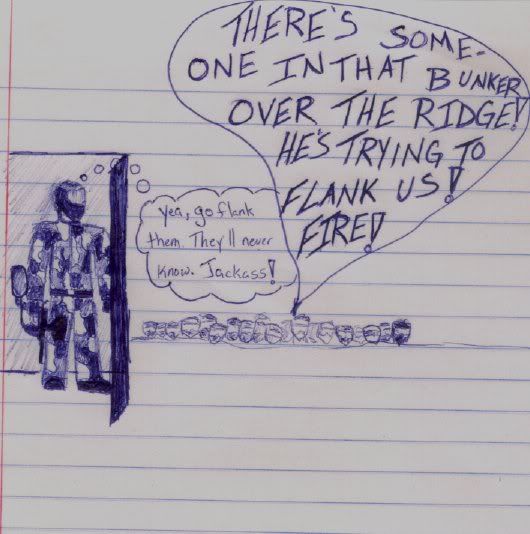 THERE'S SOME-
ONE IN THAT BUNKER
OVER THE RIDGE!
HE'S TRYING TO
FLANK US!
FIRE!
yea, go flank
them. They'll never
know. Jackass!